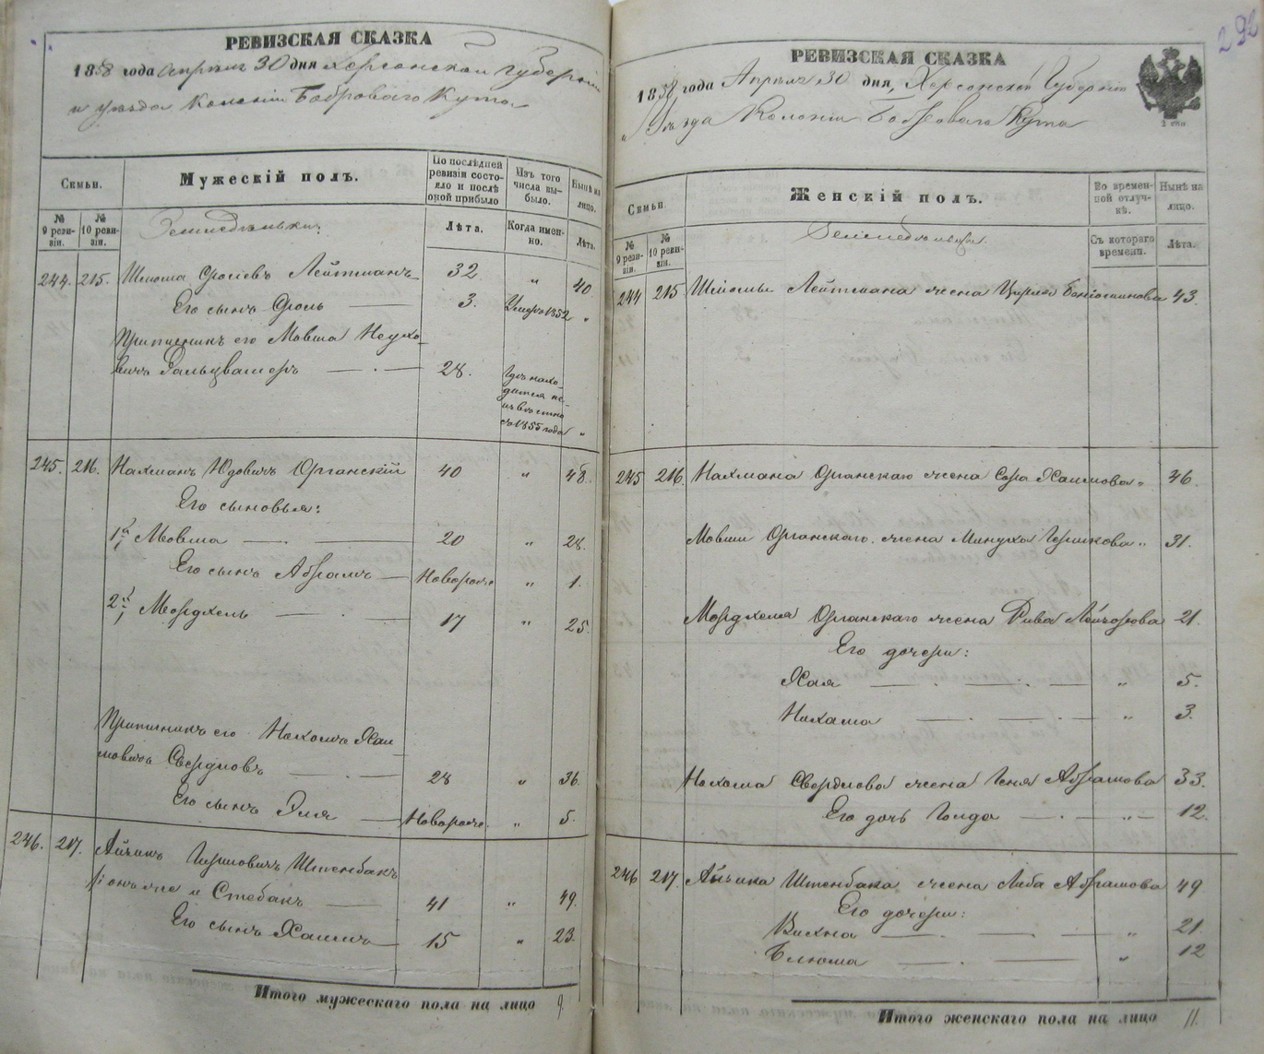 РЕВИЗСКАЯ СКАЗКА
1858 года Апреля 30 дня Херсонской Губернии
и уезда Колонии Боброваго Кута
Семьи.
Мужескій полъ.
По послѣдней ревизіи состояло и послѣ оной прибыло
Изъ того числа выбыло.
Нынѣ на лицо.
№ 9 ревизіи.
№ 10 ревизіи.
Земледѣльцы:
Лѣта.
Когда именно.
Лѣта.
244. 215. Шлиома Сролевъ Лейтманъ 32 „ 40
Его сынъ Сроль 3. Умеръ 1852 „
Приписникъ его Мовша Неухо-
вичъ Зальцвасеръ 28. Гдѣ нахо-
дится не-
извѣстно
съ 1855 года „
245. 216. Нахманъ Юдовичъ Органскій 40 „ 48.
Его сыновья:
1й Мовша 20 „ 28.
Его сынъ Абрамъ Новорожд „ 1.
2й Мордхель 17 „ 25.
Приписникъ его Нахомъ Хаи-
мовичъ Свердловъ 28 „ 36.
Его сынъ Эля Новорожд. „ 5.
246. 217. Айзикъ Гершовичъ Штенбакъ
онъ же и Стобакъ 41 „ 49.
Его сынъ Хаимъ 15 „ 23.
Итого мужескаго пола на лицо 9.
292
РЕВИЗСКАЯ СКАЗКА
1858 года Апреля 30 дня, Херсонской Губерніи
и Уезда Колоніи Бобрового Кута
Семьи
Женскій полъ.
Во временной отлучкѣ.
Нынѣ на лицо.
№ 9 ревизіи.
№ 10 ревизіи.
Земледѣльцы
Съ котораго времени.
Лѣта.
244 215 Шлиомы Лейтмана жена Цирля Беніоминова 43.
245 216. Нахмана Органскаго жена Сора Хаимова „ 46.
Мовши Органскаго жена Минуха Гершкова „ 31.
Мордхеля Органскаго жена Рива Лейзорова 21.
Его дочери:
Хая „ 5.
Нихама „ 3.
Нахома Свердлова жена Геня Абрамова 33.
Его дочь Голда „ 12.
246 217. Айзика Штенбака жена Либа Абрамова 49
Его дочери:
Вихна „ 21.
Блюма „ 12
Итого женскаго пола на лицо 11.